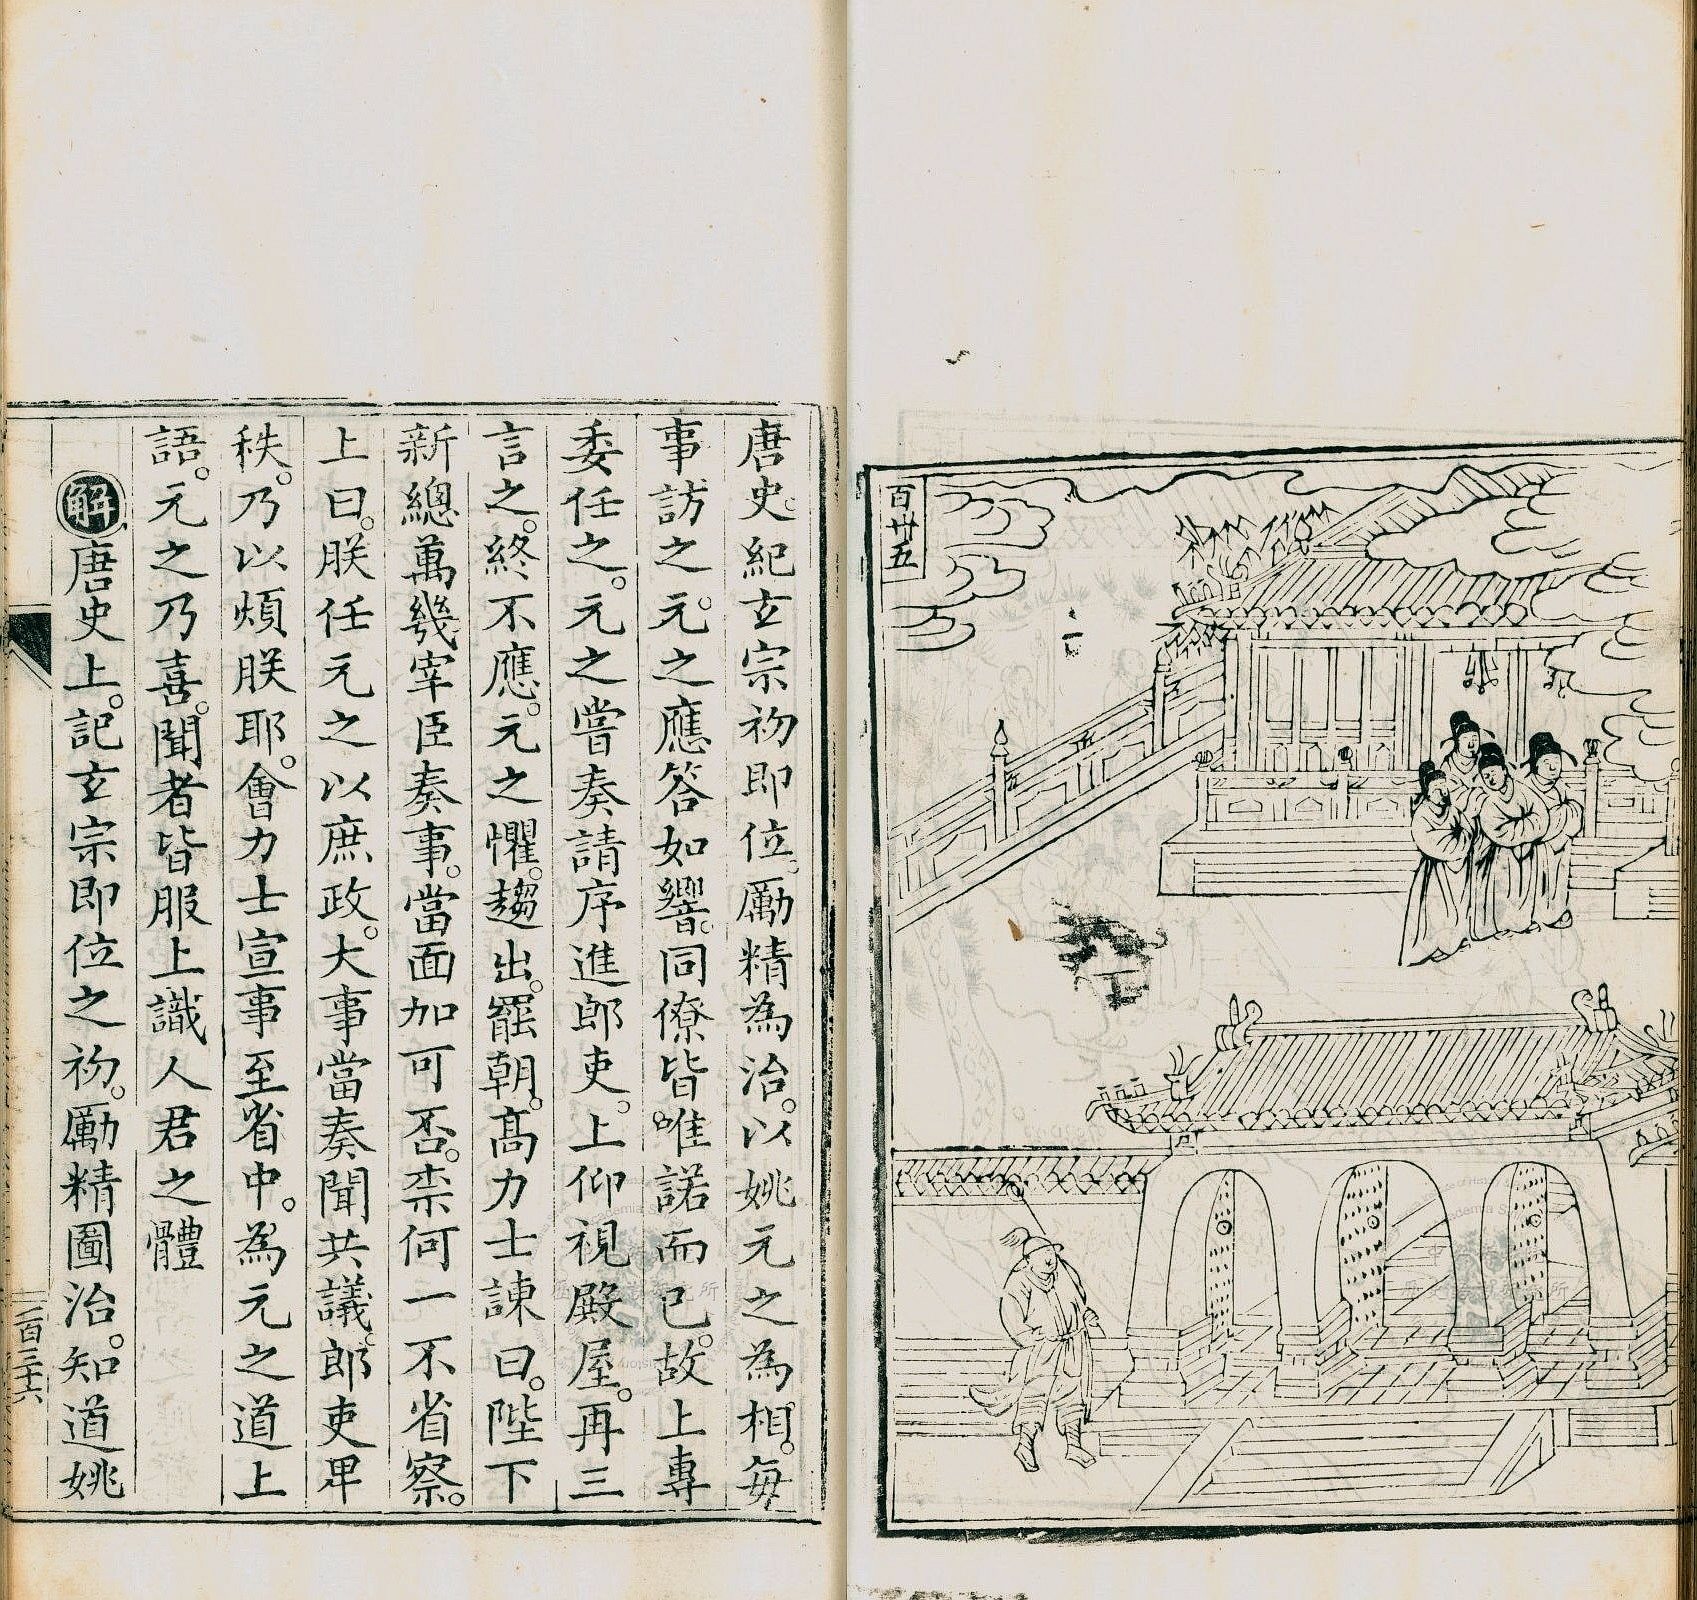 百卅五
唐史。紀玄宗初即位。勵精為治。以姚元之為相。每
事訪之。元之應答如響。同僚皆唯諾而已。故上專
委任之。元之嘗奏請序進郎吏。上仰視殿屋。再三
言之。終不應。元之懼。趨出。罷朝。高力士諫曰。陛下
新總萬幾宰臣奏事。當面加可否。柰何一不省察。
上曰。朕任元之以庶政。大事當奏聞共議。郎吏卑
秩。乃以煩朕耶。會力士宣事至省中。為元之道上
語。元之乃喜。聞者皆服上識人君之體
解唐史上。記玄宗即位之初。勵精圖治。知道姚